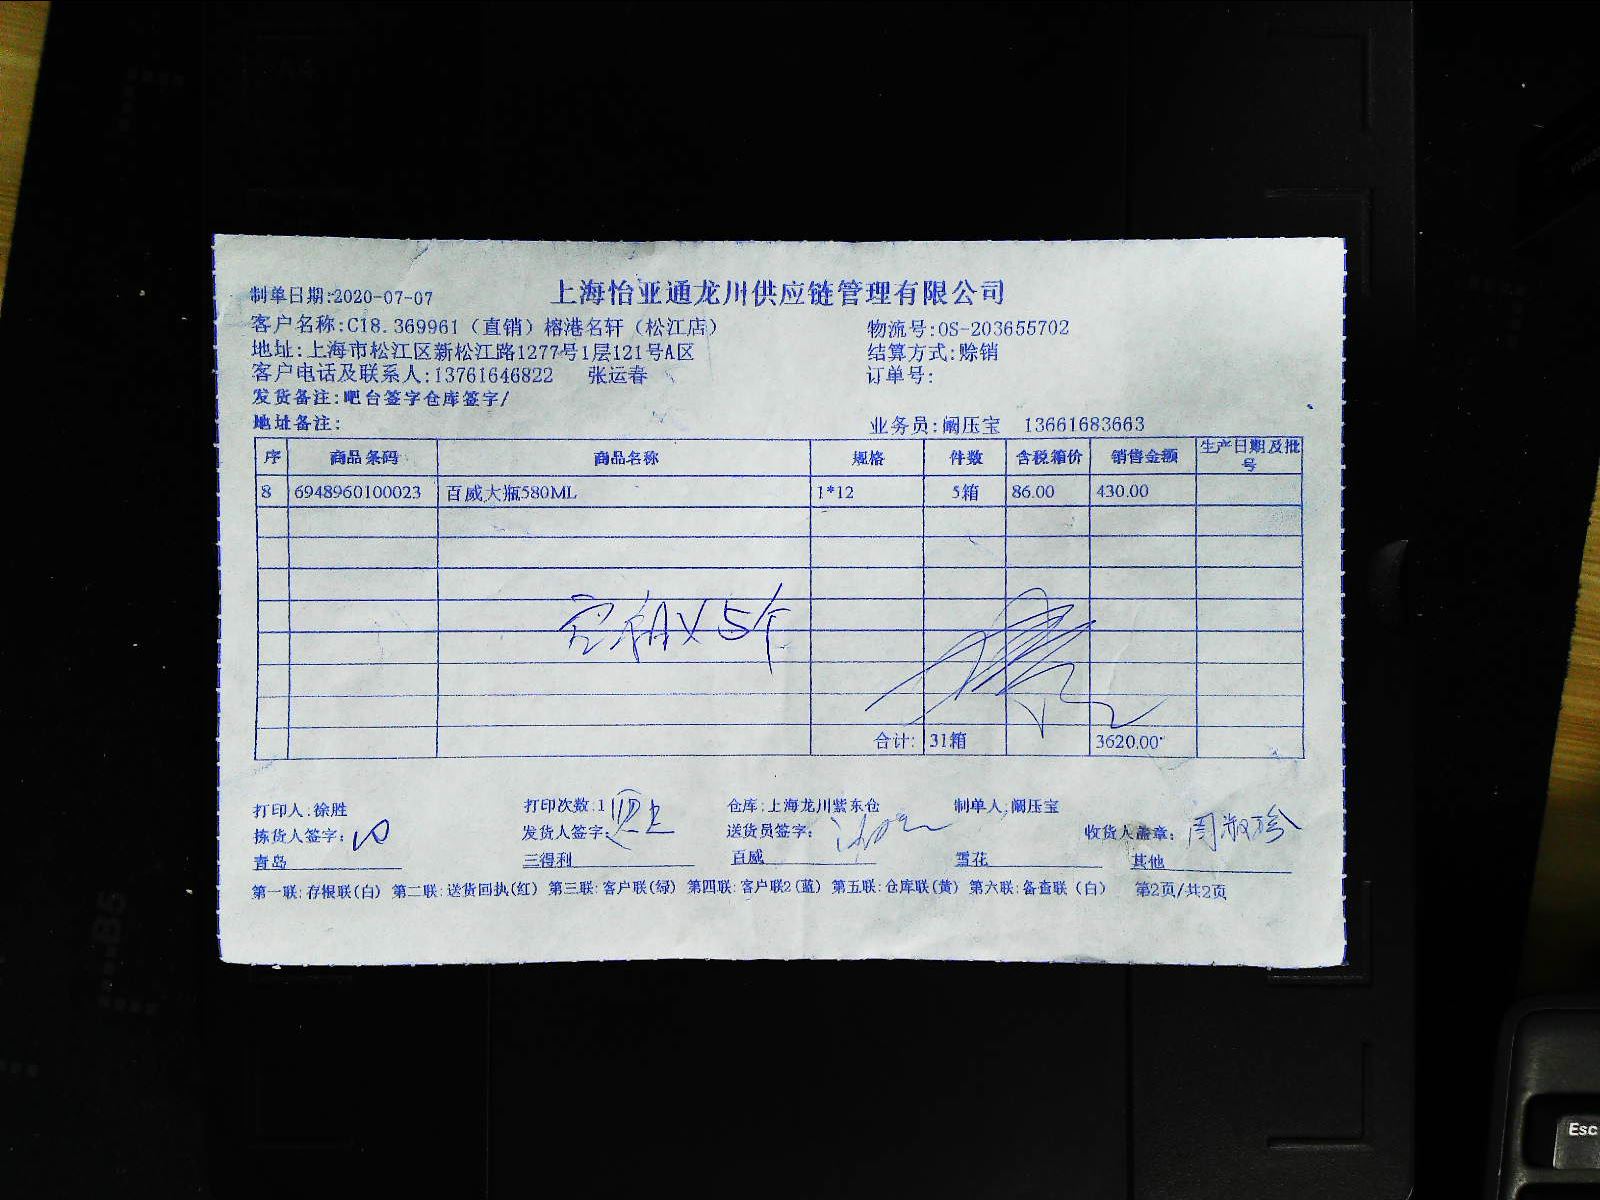 上海怡亚通龙川供应链管理有限公司
制单日期:2020-07-07
客户名称:C18.369961（直销）榕港名轩（松江店） 物流号:OS-203655702
地址:上海市松江区新松江路1277号1层121号A区 结算方式:赊销
客户电话及联系人:13761646822 张运春 订单号:
发货备注:吧台签字仓库签字/
地址备注: 业务员:阚压宝 13661683663
序 商品条码 商品名称 规格 件数 含税箱价 销售金额 生产日期及批号
8 6948960100023 百威大瓶580ML 1*12 5箱 86.00 430.00
空箱X5个
合计: 31箱 3620.00
打印人:徐胜 打印次数:1 仓库:上海龙川紫东仓 制单人:阚压宝
拣货人签字: 发货人签字: 送货员签字: 收货人盖章: 周淑珍
青岛 三得利 百威 雪花 其他
第一联:存根联(白) 第二联:送货回执(红) 第三联:客户联(绿) 第四联:客户联2(蓝) 第五联:仓库联(黄) 第六联:备查联（白） 第2页/共2页
Esc